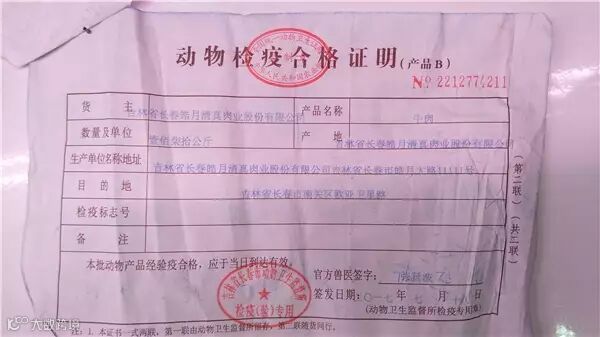 动物检疫合格证明(产品B)
№ 2212774211
货主 吉林省长春皓月清真肉业股份有限公司 产品名称 牛肉
数量及单位 壹佰柒拾公斤 产地 吉林省长春皓月清真肉业股份有限公司
生产单位名称地址 吉林省长春皓月清真肉业股份有限公司吉林省长春市皓月大路11111号
目的地 吉林省长春市南关区欧亚卫星路
检疫标志号
备注
本批动物产品经检疫合格，应于当日到达有效。
官方兽医签字：
签发日期：
年 七月
(动物卫生监督所检疫专用章)
检疫(验)专用
注：1. 本证书一式两联，第一联由动物卫生监督所留存，第二联随货同行。
(第二联)
(共二联)
大数跨境